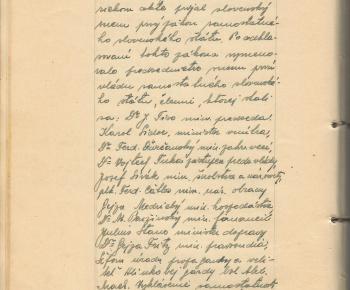 aktu prijal slovenský
snem prvý zákon samostatné-
ho slovenského štátu. Po odhla-
sovaní tohto zákona vymeno-
valo predsedníctvo snemu prvú
vládu samostatného slovenské-
ho štátu, členmi, ktorej stali
sa: Dr J. Tiso min. predseda.
Karol Sidor, minister vnútra,
Dr. Ferd. Ďurčanský min. zahr. vecí,
Dr Vojtech Tuka zástupca predu vlády,
Jozef Sivák min. školstva a nár. osvety,
plk. Ferd. Čatloš min. nár. obrany
Gejza Medrický min. hospodárstva
Dr. M. Pružinský min. financií
Julius Stano minister dopravy
Dr Gejza Fritz min. pravosúdia,
Šéfom úradu propagandy a veli-
teľ Hlinkovej gardy bol Aleš.
Mach. Vyhlásenie samostatnosti